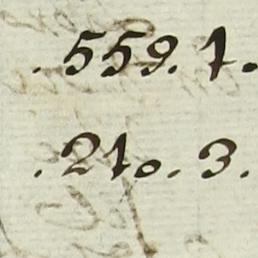 .559.1.
.210.3.